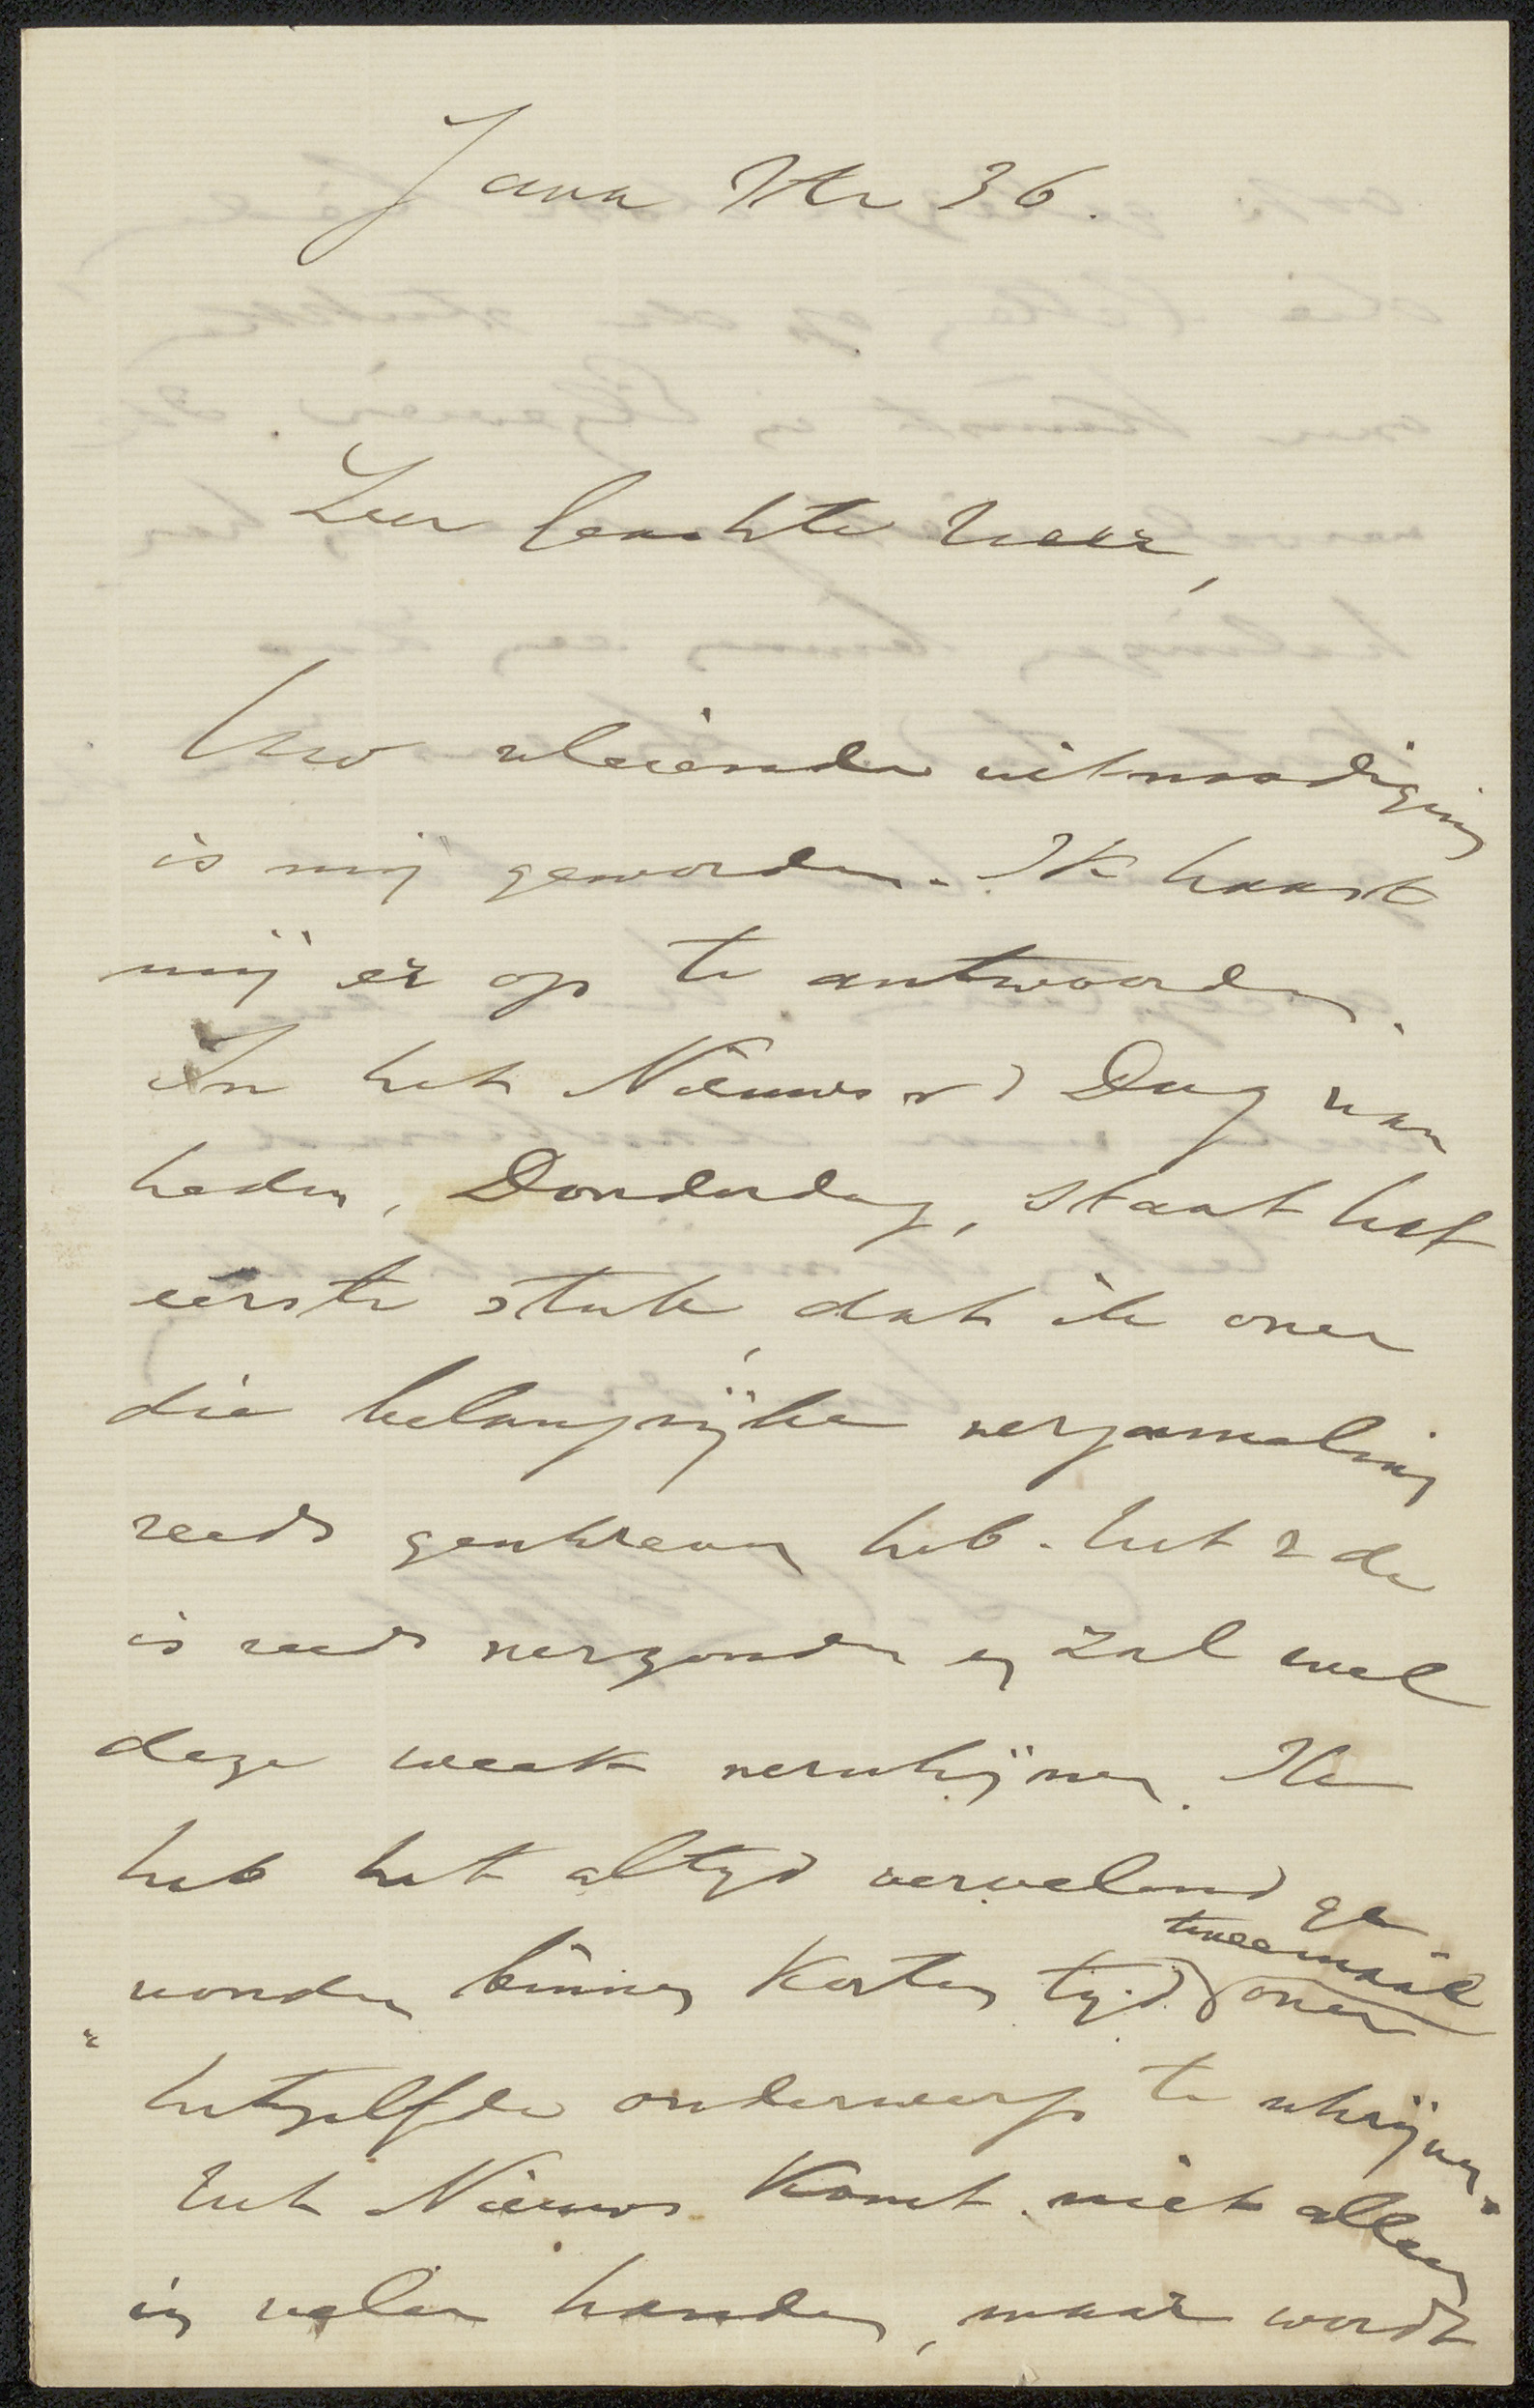 Java Str 36.
Zeer Geachte Heer,
Uw vleiende uitnoodiging
is mij geworden. Ik haast
mij er op te antwoorden.
In het Nieuws v d Dag van
heden, Donderdag, staat het
eerste stuk, dat ik over
die belangrijke verzameling
reeds geschreven heb. Het 2de
is reeds verzonden en zal wel
deze week verschijnen. Ik
heb het altijd vervelend ge-
vonden binnen korten tijd tweemaal over
hetzelfde onderwerp te schrijven.
Het Nieuws komt niet alleen
in veler handen, maar wordt